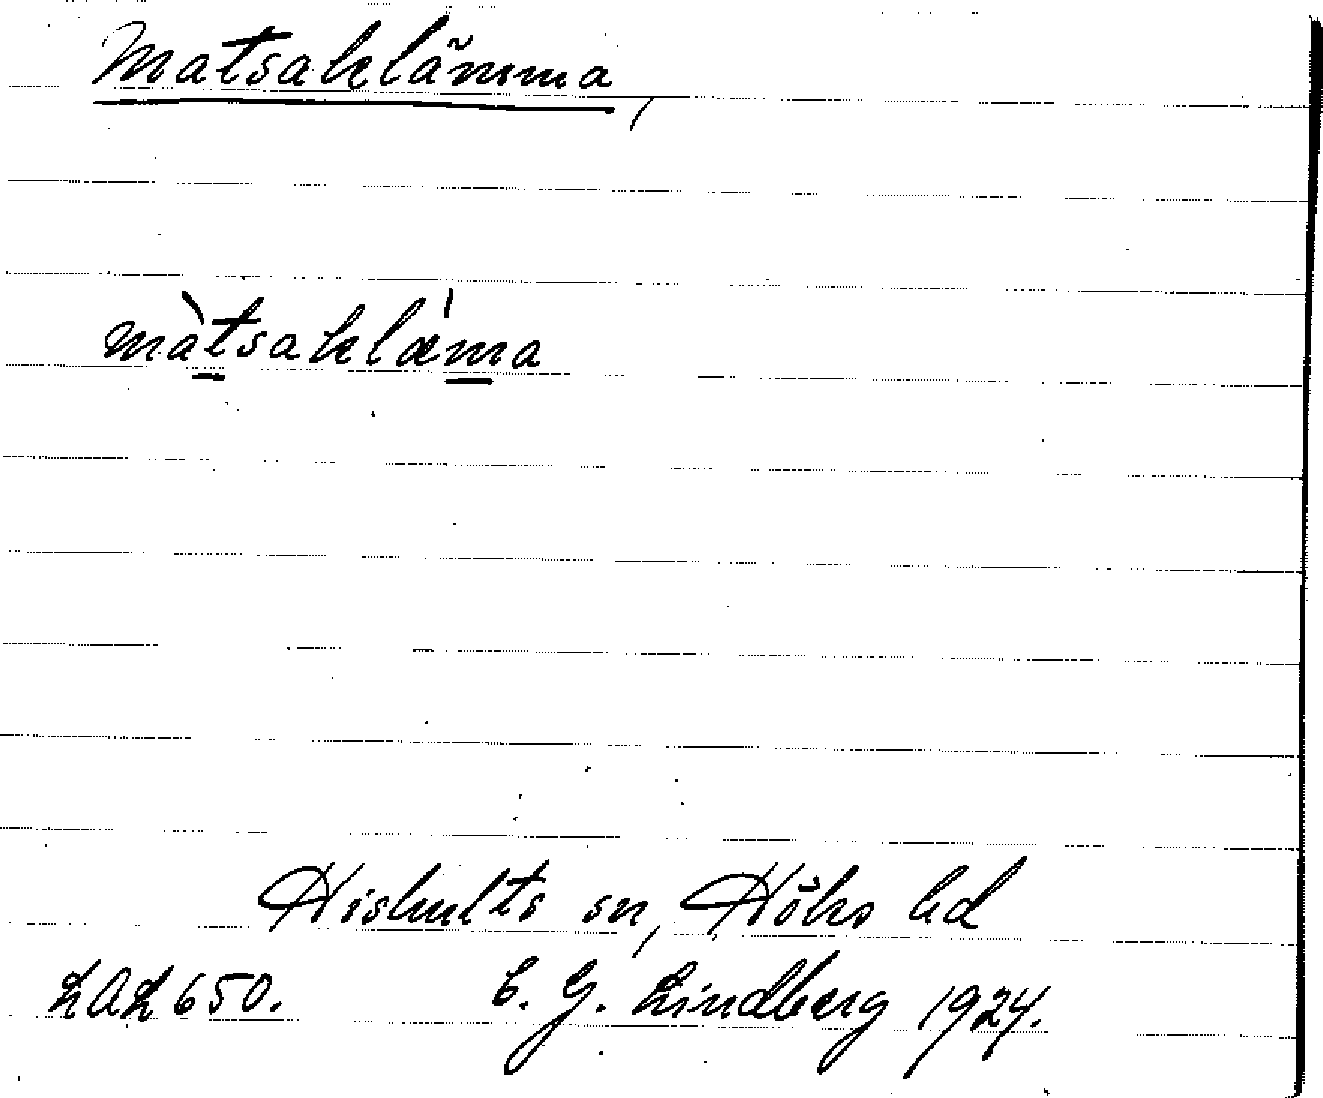 Matsaklämma,
màtsaklæ'ma
Hishults sn, Höks hd
LAL 650. C. G. Lindberg 1924.